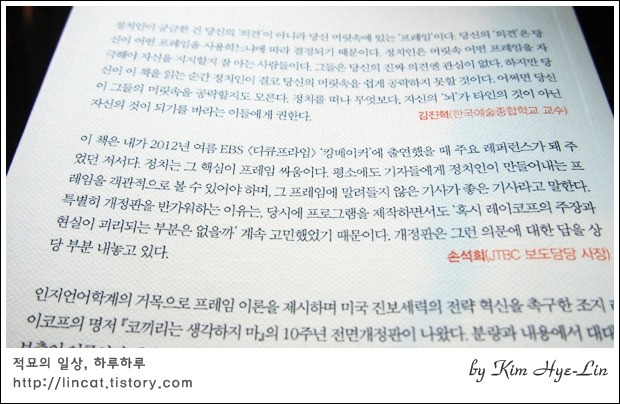 정치인이 궁금한 건 당신의 '의견'이 아니라 당신 머릿속에 있는 '프레임'이다. 당신의 '의견'은 당
신이 어떤 프레임을 사용하느냐에 따라 결정되기 때문이다. 정치인은 머릿속 어떤 프레임을 자
극해야 자신을 지지할지 잘 아는 사람들이다. 그들은 당신의 진짜 의견엔 관심이 없다. 하지만 당
신이 이 책을 읽는 순간 정치인이 결코 당신의 머릿속을 쉽게 공략하지 못할 것이다. 어쩌면 당신
이 그들의 머릿속을 공략할지도 모른다. 정치를 떠나 무엇보다, 자신의 '뇌'가 타인의 것이 아닌
자신의 것이 되기를 바라는 이들에게 권한다.
김진혁(한국예술종합학교 교수)
이 책은 내가 2012년 여름 EBS 〈다큐프라임〉 '킹메이커'에 출연했을 때 주요 레퍼런스가 돼 주
었던 저서다. 정치는 그 핵심이 프레임 싸움이다. 평소에도 기자들에게 정치인이 만들어내는 프
레임을 객관적으로 볼 수 있어야 하며, 그 프레임에 말려들지 않은 기사가 좋은 기사라고 말한다.
특별히 개정판을 반가워하는 이유는, 당시에 프로그램을 제작하면서도 '혹시 레이코프의 주장과
현실이 괴리되는 부분은 없을까' 계속 고민했었기 때문이다. 개정판은 그런 의문에 대한 답을 상
당 부분 내놓고 있다.
손석희(JTBC 보도담당 사장)
인지언어학계의 거목으로 프레임 이론을 제시하며 미국 진보세력의 전략 혁신을 촉구한 조지
이코프의 명저 『코끼리는 생각하지 마』의 10주년 전면개정판이 나왔다. 분량과 내용에서 대대
적묘의 일상, 하루하루
http://lincat.tistory.com
by Kim Hye-Lin